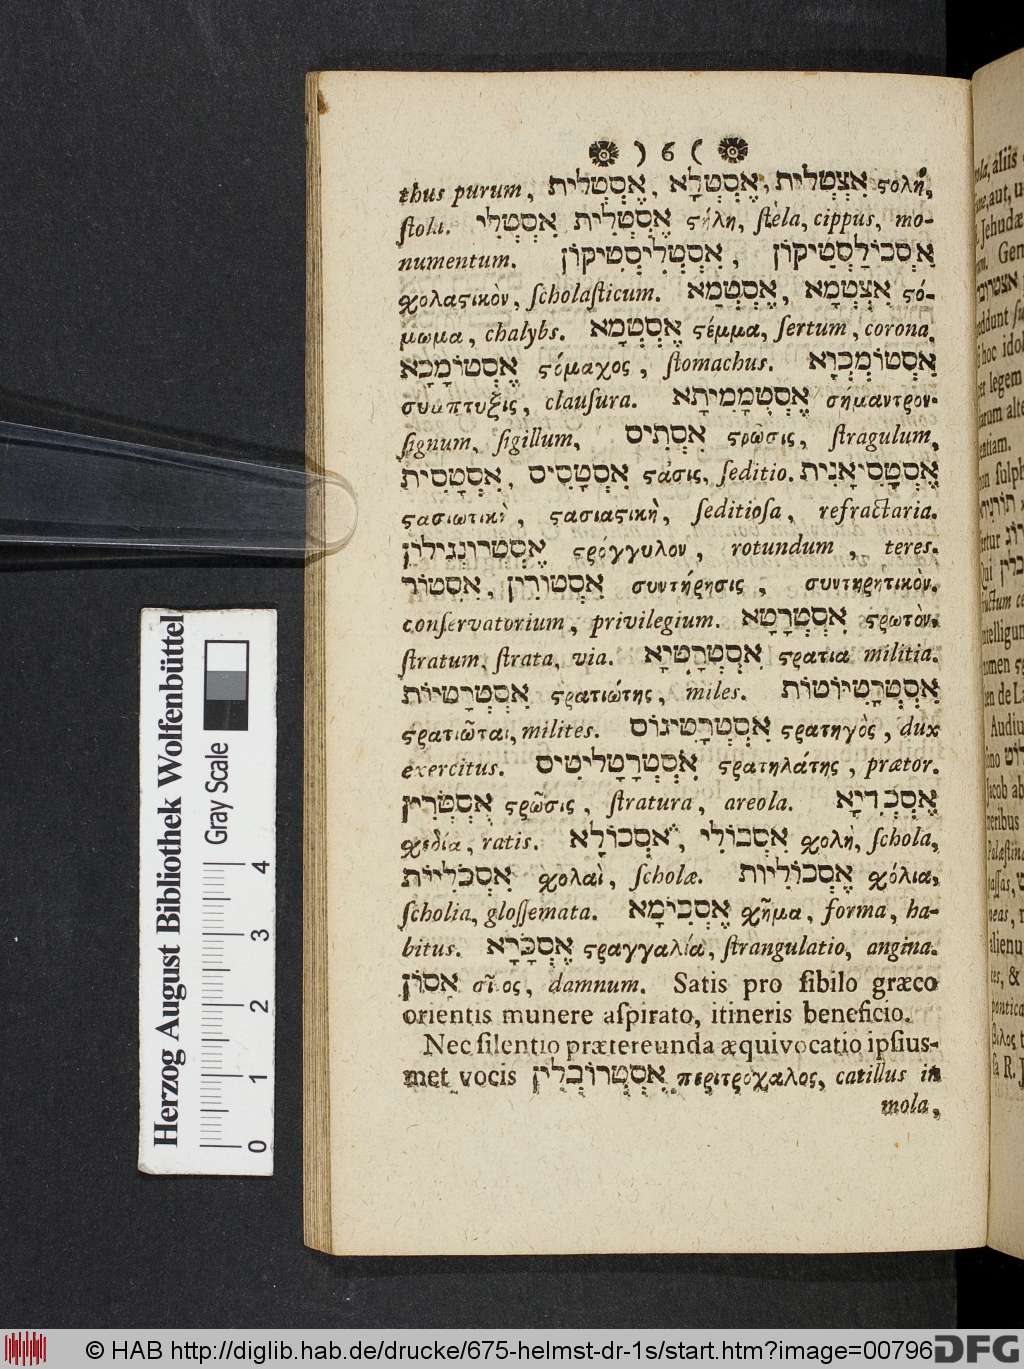 ) 6 (
thus purum, אִצְטְלִית, אֶסְטְלָא, אֶסְטְלִית ςολή,
ſtola. אִסְטְלִי אֶסְטְלִית ςήλη, ſtèla, cippus, mo-
numentum. אִסְטְלִיסְטִיקוֹן, אַסְכוֹלַסְטִיקוֹן
ϛχολαςικὸν, ſcholaſticum. אִצְטְמָא, אֶסְטְמַא ςό-
μωμα, chalybs. אֶסְטְמָא ςέμμα, ſertum, corona.
אֶסְטוֹמָכָא ςόμαχος, ſtomachus. אַסְטוֹמְכְיָא
συμπτυξις, clauſura. אֶסְטִמָמִיתָא σήμαντρον.
ſignum, ſigillum, אִסְתִיס ςρῶσις, ſtragulum,
אִסְטָסִית, אִסְטָסִיס ςάσις, ſeditio. אֶסְטָסִיאָנִית
ςασιωτικὴ, ςασιαςικὴ, ſeditioſa, refractaria.
אֶסְטְרוֹנְגִילוֹן ςρόγγυλον, rotundum, teres.
אִסְטוֹר, אִסְטוֹרִין συντήρησις, συντηρητικὸν,
conſervatorium, privilegium. אִסְטְרָטָא ςρωτὸν,
ſtratum, ſtrata, via. אִסְטְרָטִיָא ςρατια militia.
אִסְטְרָטִיוֹת ςρατιώτης, miles. אִסְטְרָטִיוֹטוֹת
ςρατιῶται, milites. אִסְטְרָטִיגוֹס ςρατηγὸς, dux
exercitus. אִסְטְרָטָלִיטִיס ςρατηλάτης, prætor.
אֻסְטְרִין ςρῶσις, ſtratura, areola. אֶסְכְדִיָא
ϛχεδία, ratis. אִסְכוֹלִי, אִסְכוֹלָא ϛχολὴ, ſchola,
אִסְכֹּלִיוֹת ϛχολαὶ, ſcholæ. אֶסְכוֹלִיוּת ϛχόλια,
ſcholia, gloſſemata. אֶסְכִימָא ϛχῆμα, forma, ha-
bitus. אֶסְכָּרָא ςραγγαλία, ſtrangulatio, angina.
אִסוֹן σῖνος, damnum. Satis pro ſibilo græco
orientis munere aſpirato, itineris beneficio.
Nec ſilentio prætereunda æquivocatio ipſius-
met vocis אֶסְטְרוֹבְלִין περιτρόχαλος, catillus in
mola,
Herzog August Bibliothek Wolfenbüttel
Gray Scale
0 1 2 3 4
© HAB http://diglib.hab.de/drucke/675-helmst-dr-1s/start.htm?image=00796
DFG